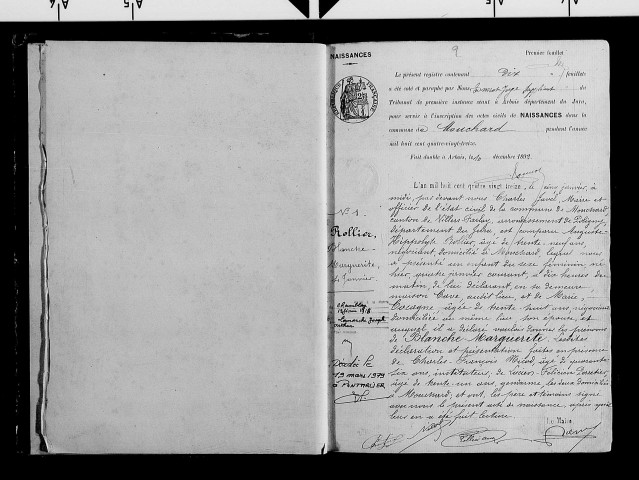 NAISSANCES
Premier feuillet
Le présent registre contenant Dix feuillets
a été coté et paraphé par Nous,
Tribunal de première instance séant à Arbois département du Jura,
pour servir à l'inscription des actes civils de NAISSANCES dans la
commune de Mouchard pendant l'année
mil huit cent quatre-vingt-treize.
Fait double à Arbois, le décembre 1892.
N° 1.
Rollier,
Blanche-
Marguerite,
4 Janvier.
L'an mil huit cent quatre vingt treize, le cinq janvier, à
midi, par devant nous Charles Javel, Maire et
officier de l'état civil de la commune de Mouchard,
canton de Villers-Farlay, arrondissement de Poligny,
département du Jura, est comparu Auguste-
Hippolyte Rollier, âgé de trente neuf ans,
négociant, domicilié à Mouchard, lequel nous
a présenté un enfant du sexe féminin, né
hier, quatre janvier courant, à dix heures du
matin, de lui déclarant, en sa demeure,
maison Cave, audit lieu, et de Marie
âgée de trente huit ans, négociante
domiciliée au même lieu son épouse,
auquel il a déclaré vouloir donner les prénoms
de Blanche Marguerite. Lesdites
déclaration et présentation faites en présence
de Charles François âgé de quarante
six ans, instituteur, de Louis Félicien
âgé de trente un ans, gendarme, les deux domiciliés
à Mouchard, et ont, les père et témoins signé
avec nous le présent acte de naissance, après que
leur en a été fait lecture.
Le Maire
Décédée le
19 mars 1979
à PONTARLIER